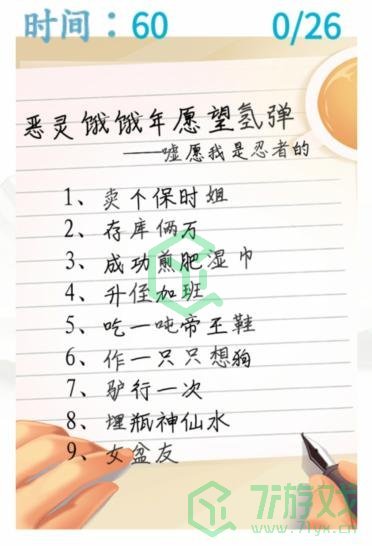 时间：60 0/26
恶灵饿饿年愿望氢弹
——嘘愿我是忍者的
1、卖个保时姐
2、存库俩万
3、成功煎肥湿巾
4、升侄加班
5、吃一吨帝王鞋
6、作一只只想狗
7、驴行一次
8、埋瓶神仙水
9、女盆友
7i游戏
www.7iyx.com